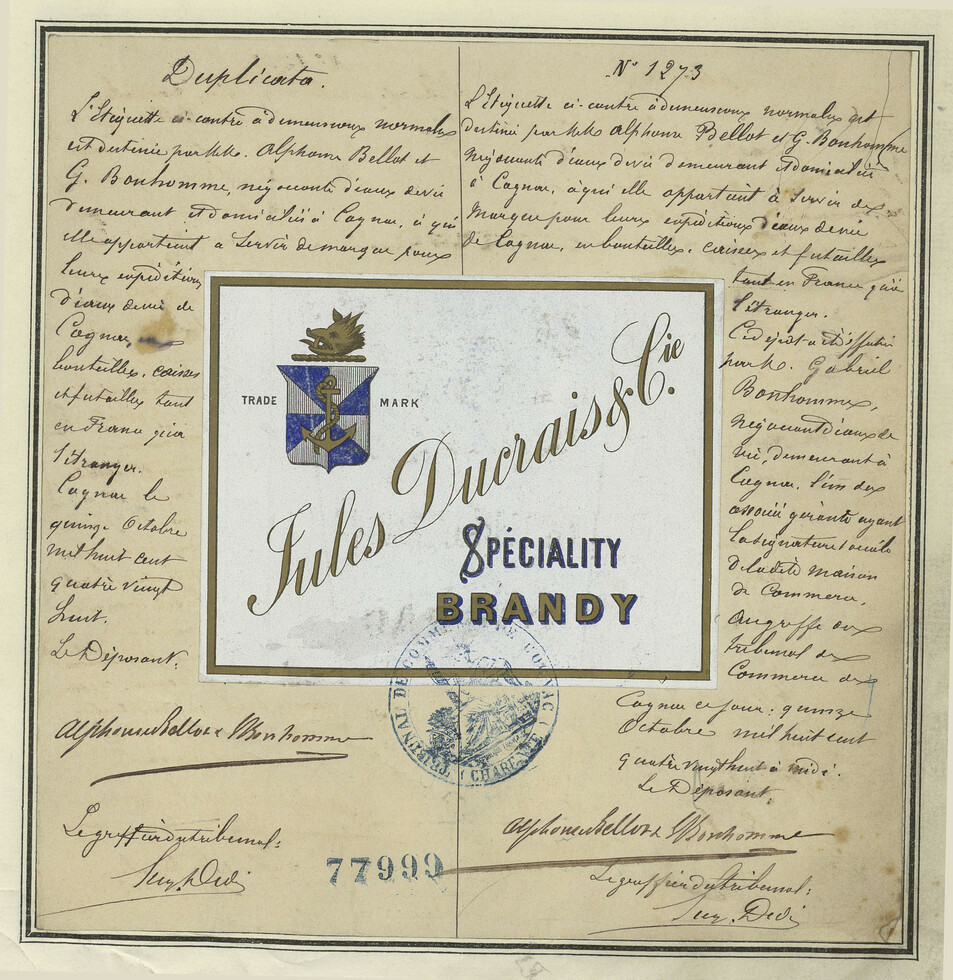 Duplicata.
L'Etiquette ci-contre à dimensions normales
est destinée par MM. Alphonse Bellot et
G. Bonhomme, négociants d'eaux de vie
demeurant et domiciliés à Cognac, à qui
elle appartient à servir de marque pour
leurs expéditions
d'eaux de vie de
Cognac, en
bouteilles, caisses
et futailles tant
en France qu'à
l'étranger.
Cognac le
quinze Octobre
mil huit cent
quatre vingt
huit.
Le Déposant.
Alphonse Bellot & Bonhomme
Le greffier du tribunal:
N° 1273
L'Etiquette ci-contre à dimensions normales est
destinée par MM. Alphonse Bellot et G. Bonhomme
négociants d'eaux de vie demeurant et domiciliés
à Cognac, à qui elle appartient à servir de
marque pour leurs expéditions d'eaux de vie
de Cognac, en bouteilles, caisses et futailles
tant en France qu'à
l'étranger.
Ce dépôt a été effectué
par M. Gabriel
Bonhomme,
négociant d'eaux de
vie, demeurant à
Cognac, l'un des
associés gérants ayant
la signature sociale
de la dite maison
de Commerce,
au greffe du
tribunal de
Commerce de
Cognac ce jour: quinze
Octobre mil huit cent
quatre vingt huit à midi.
Le Déposant,
Alphonse Bellot & Bonhomme
Le greffier du tribunal:
TRADE MARK
Jules Ducrais & Cie.
SPÉCIALITY
BRANDY
TRIBUNAL DE COMMERCE DE COGNAC
(CHARENTE)
77999